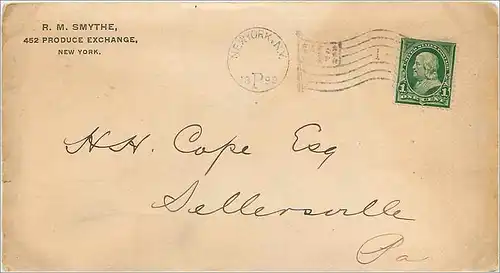 R. M. SMYTHE,
452 PRODUCE EXCHANGE,
NEW YORK.
NEW YORK, N.Y.
P
1
1 ONE CENT 1
H.H. Cope Esq
Sellersville
Pa